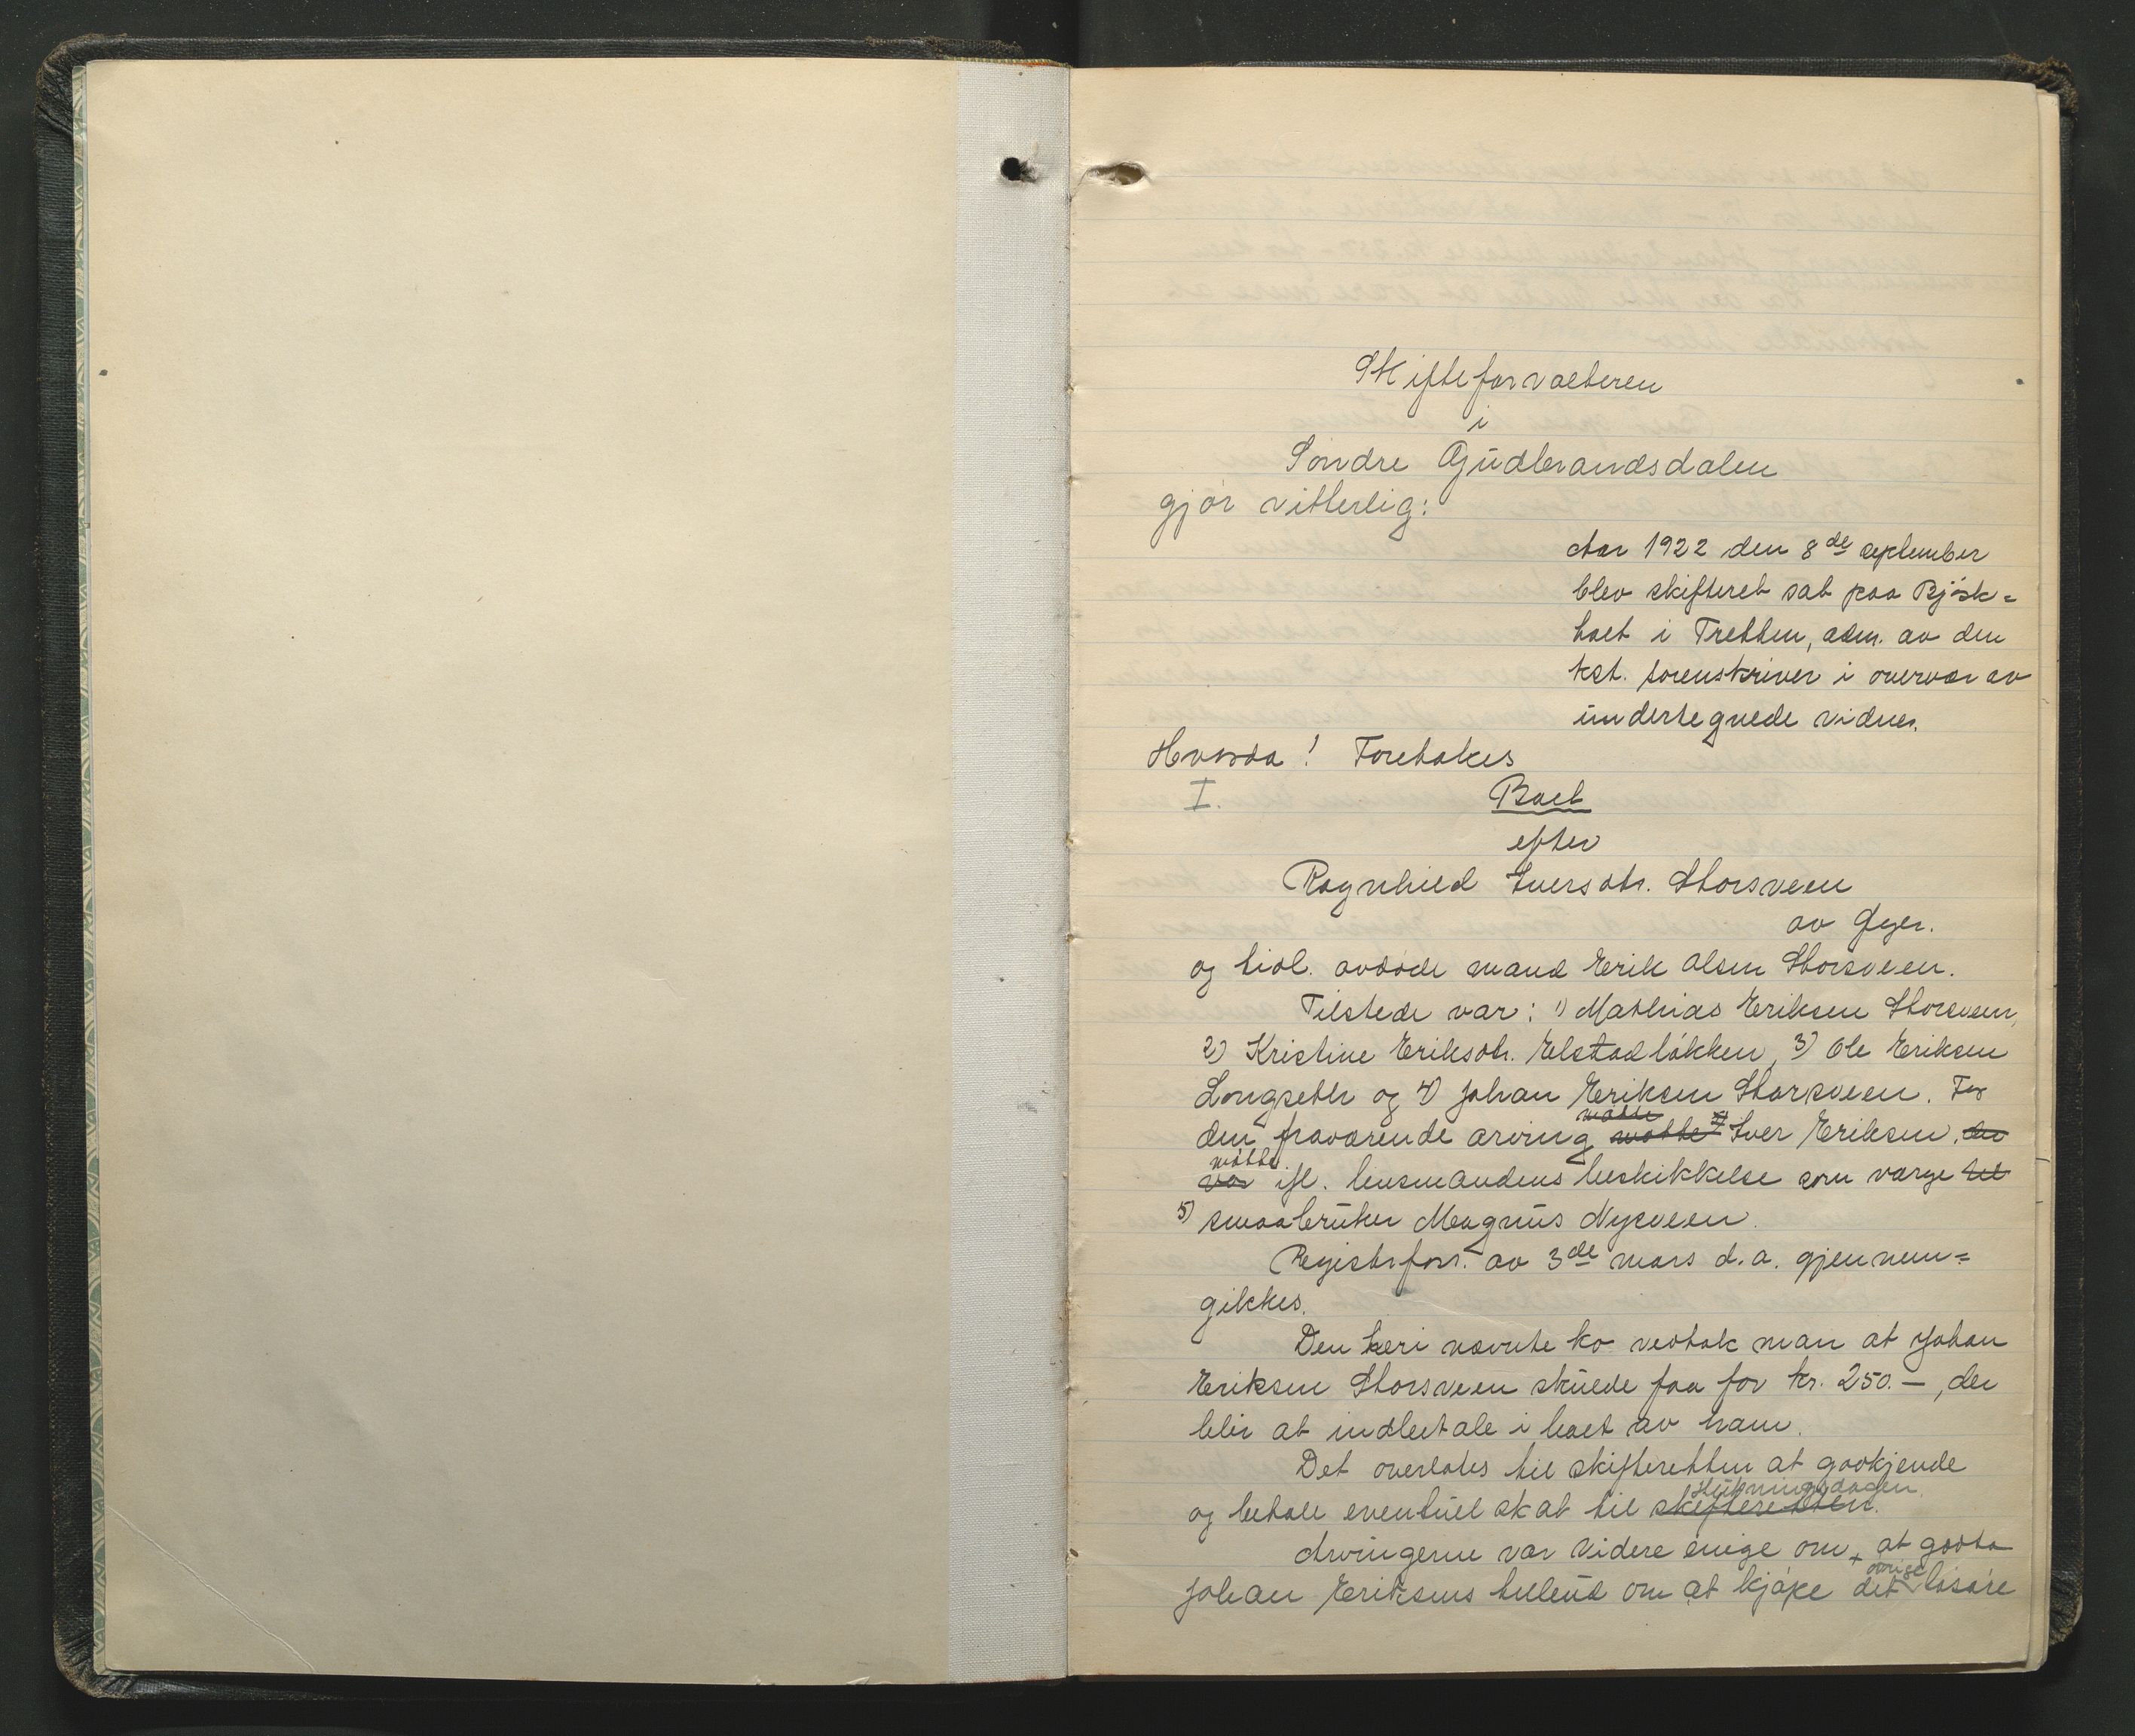 Skifteforvalteren
i
Söndre Gudbrandsdalen
gjör vitterlig:
Aar 1922 den 8de september
blev skifteret sat paa Björk=
haet i Tretten, adm. av den
kst. sorenskriver i overvær av
undertegnede vidner.
Hvorda! Foretokes
I. Boet
efter
Ragnhild Iversdtr. Storsveen
av Öyer.
og tidl. avdöde mand Erik Olsen Storsveen.
Tilstede var: 1) Mathias Eriksen Storsveen,
2) Kristine Eriksdtr. Elstadlökken, 3) Ole Eriksen
Longseth og 4) Johan Eriksen Storsveen. For
den fraværende arving mötte mötte Iver Eriksen, der
mötte
var ifl. lensmandens beskikkelse som værge til
5) smaabruker Magnus Nysveen.
Registr.forr. av 3de mars d.a. gjennem=
gikkes.
Den heri nævnte ko vedtok man at Johan
Eriksen Storsveen skulde faa for kr. 250.—, der
blir at indbetale i boet av ham.
Det overlates til skifteretten at godkjende
slutningsdagen.
og betale eventuel skat til skifteretten.
Arvingerne var videre enige om at godta
övrige
Johan Eriksens tilbud om at kjöpe det lösöre